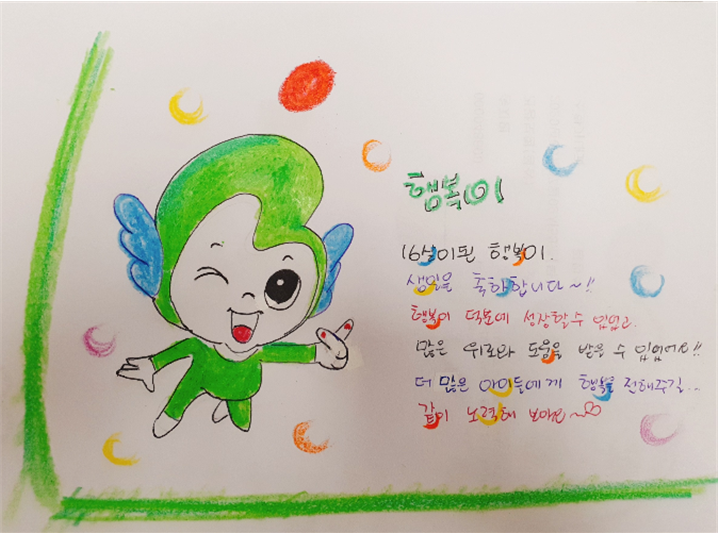 행복이
16살이된 행복이.
생일을 축하합니다~!!
행복이 덕분에 성장할수 있었고.
많은 위로와 도움을 받을 수 있었어요!!
더 많은 아이들에게 행복을 전해주길...
같이 노력해 보아요~